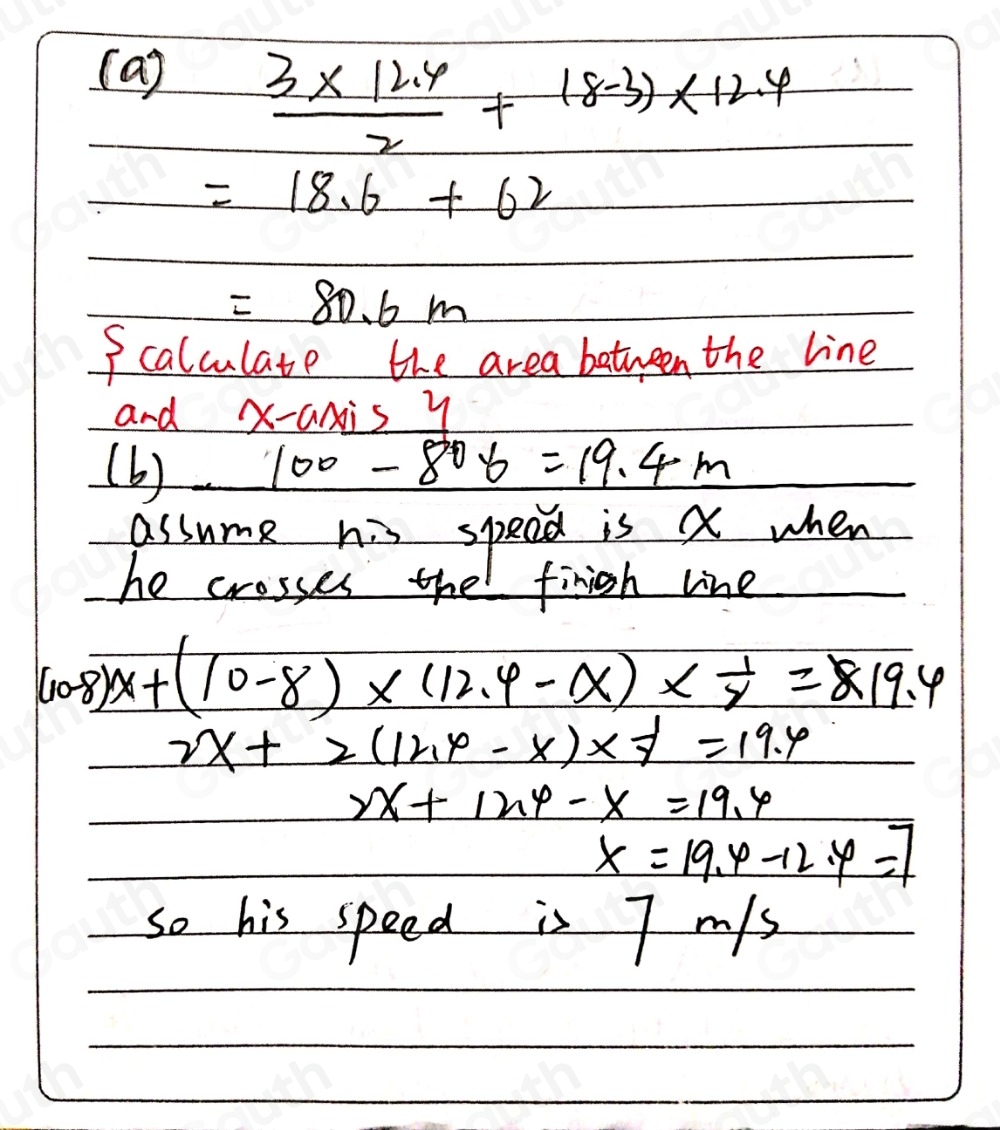 (a) 3 × 12.4 / 2 + (8-3) × 12.4
= 18.6 + 62
= 80.6 m
{ calculate the area between the line
and x-axis }
(b) 100 - 80.6 = 19.4 m
assume his speed is x when
he crosses the finish line
(10-8)x + (10-8) × (12.4 - x) × 1/2 = 19.4
2x + 2(12.4 - x) × 1/2 = 19.4
2x + 12.4 - x = 19.4
x = 19.4 - 12.4 = 7
so his speed is 7 m/s
Gauth